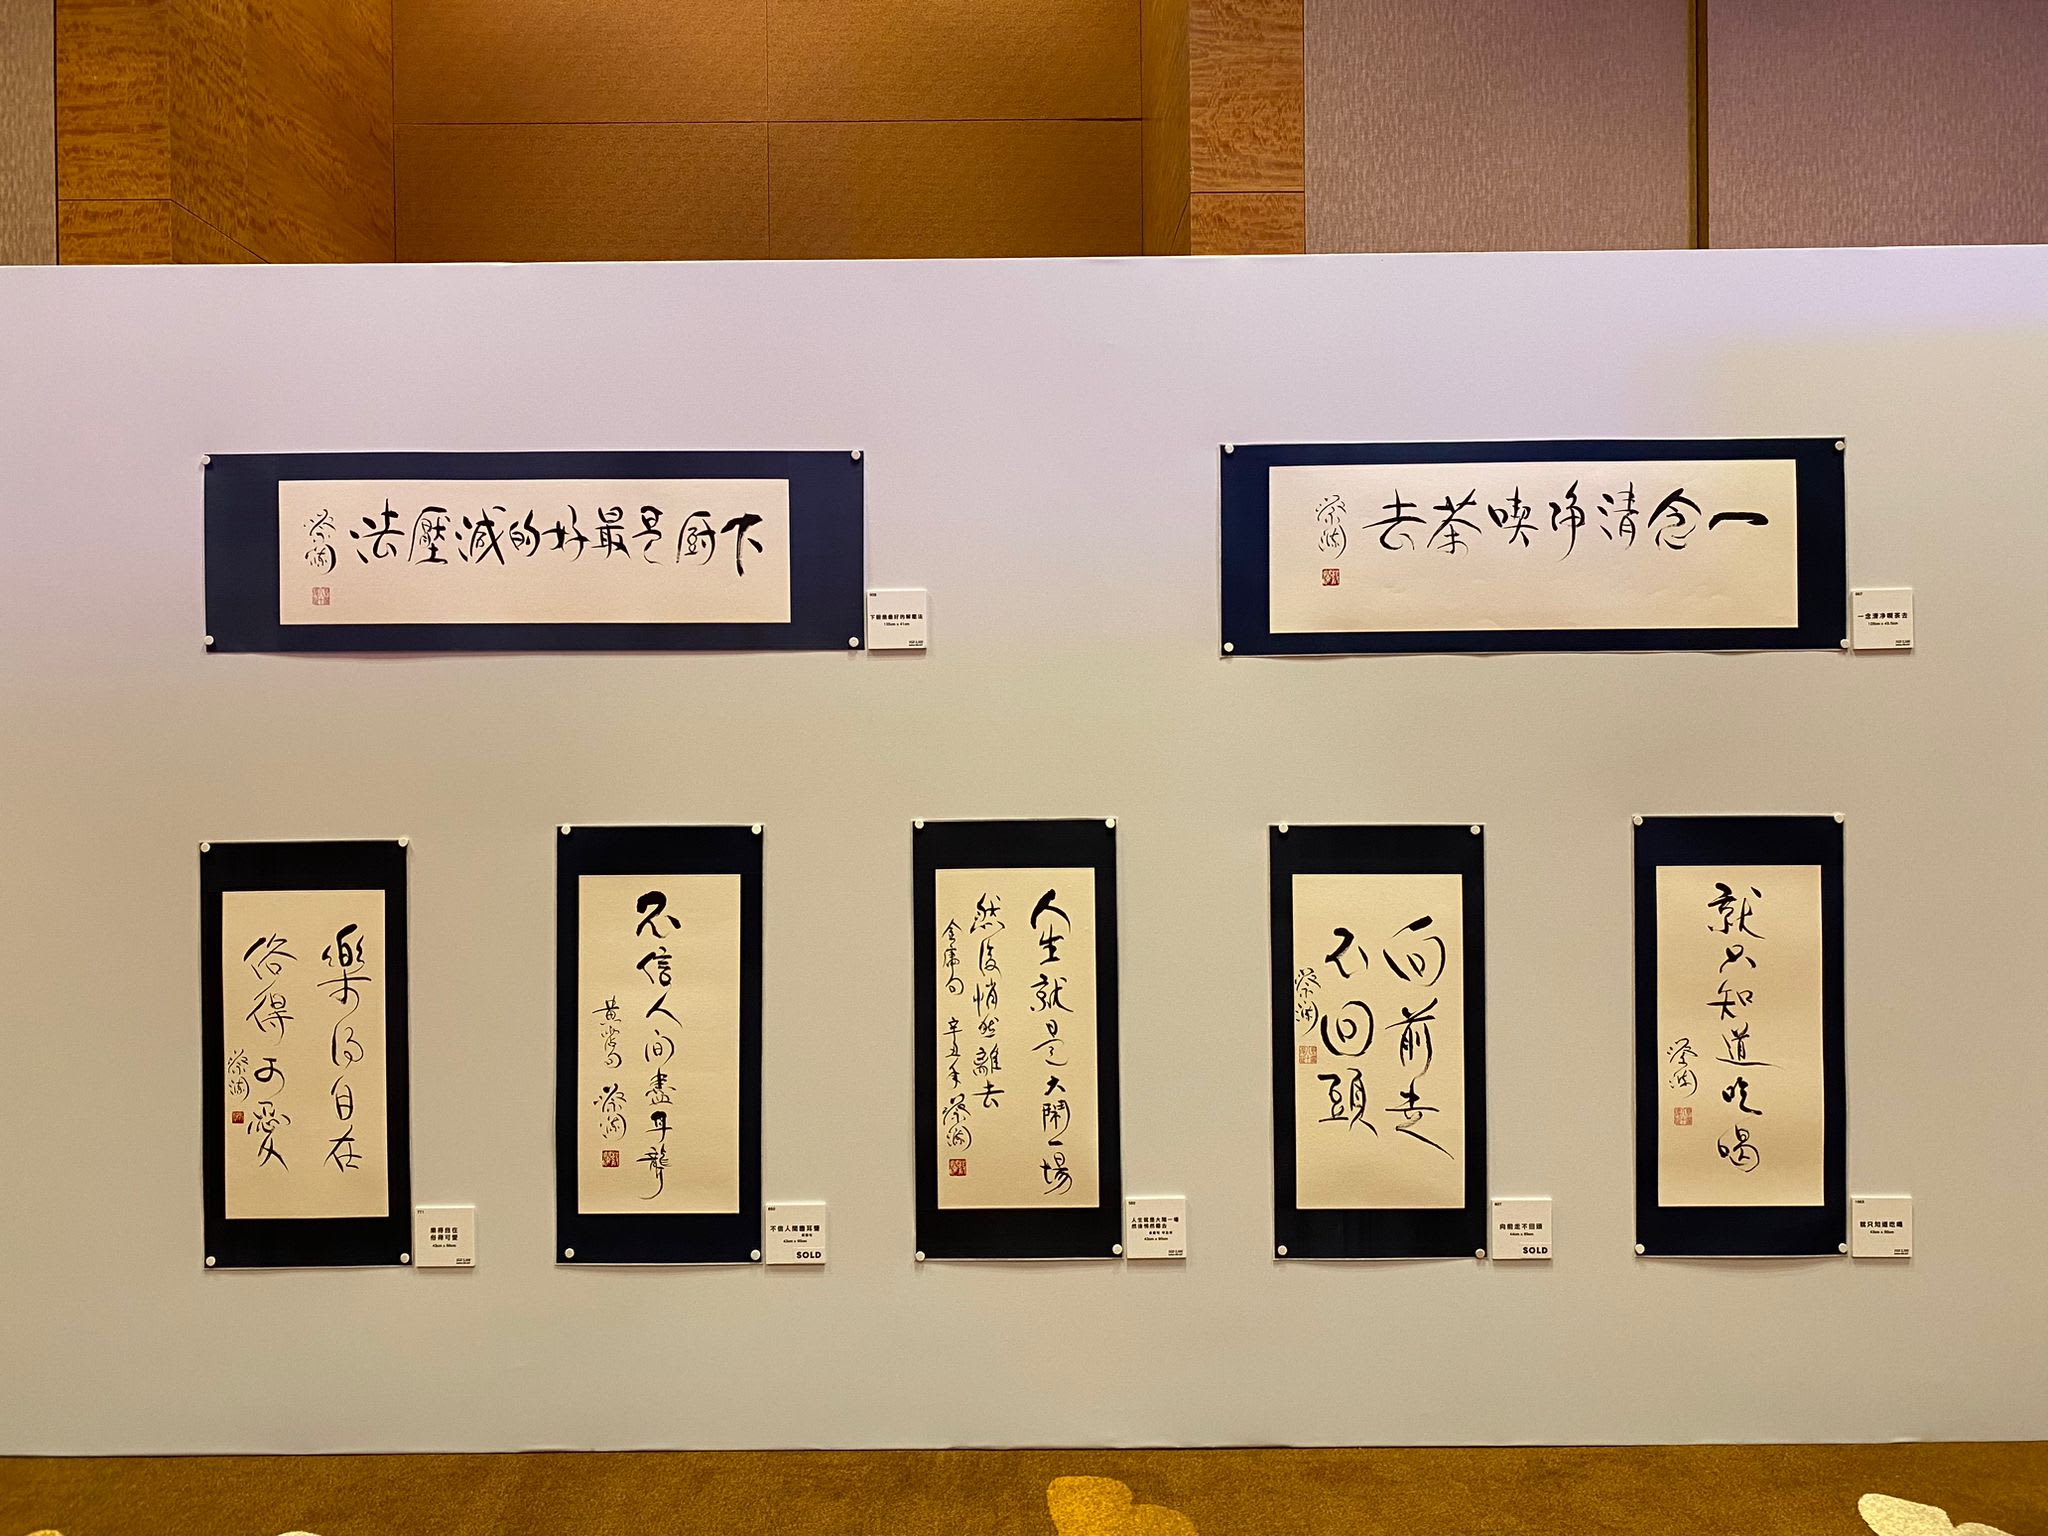 下厨是最好的減壓法
蔡瀾
下廚是最好的解壓法
一念清淨喫茶去
蔡瀾
一念清淨喫茶去
樂得自在
俗得可愛
蔡瀾
771
樂得自在
俗得可愛
不信人間盡耳聾
黃霑句
蔡瀾
不信人間盡耳聾
黃霑句
SOLD
人生就是大鬧一場
然後悄然離去
金庸句 辛丑年 蔡瀾
人生就是大鬧一場
然後悄然離去
向前走
不回頭
蔡瀾
向前走不回頭
SOLD
就只知道吃喝
蔡瀾
就只知道吃喝